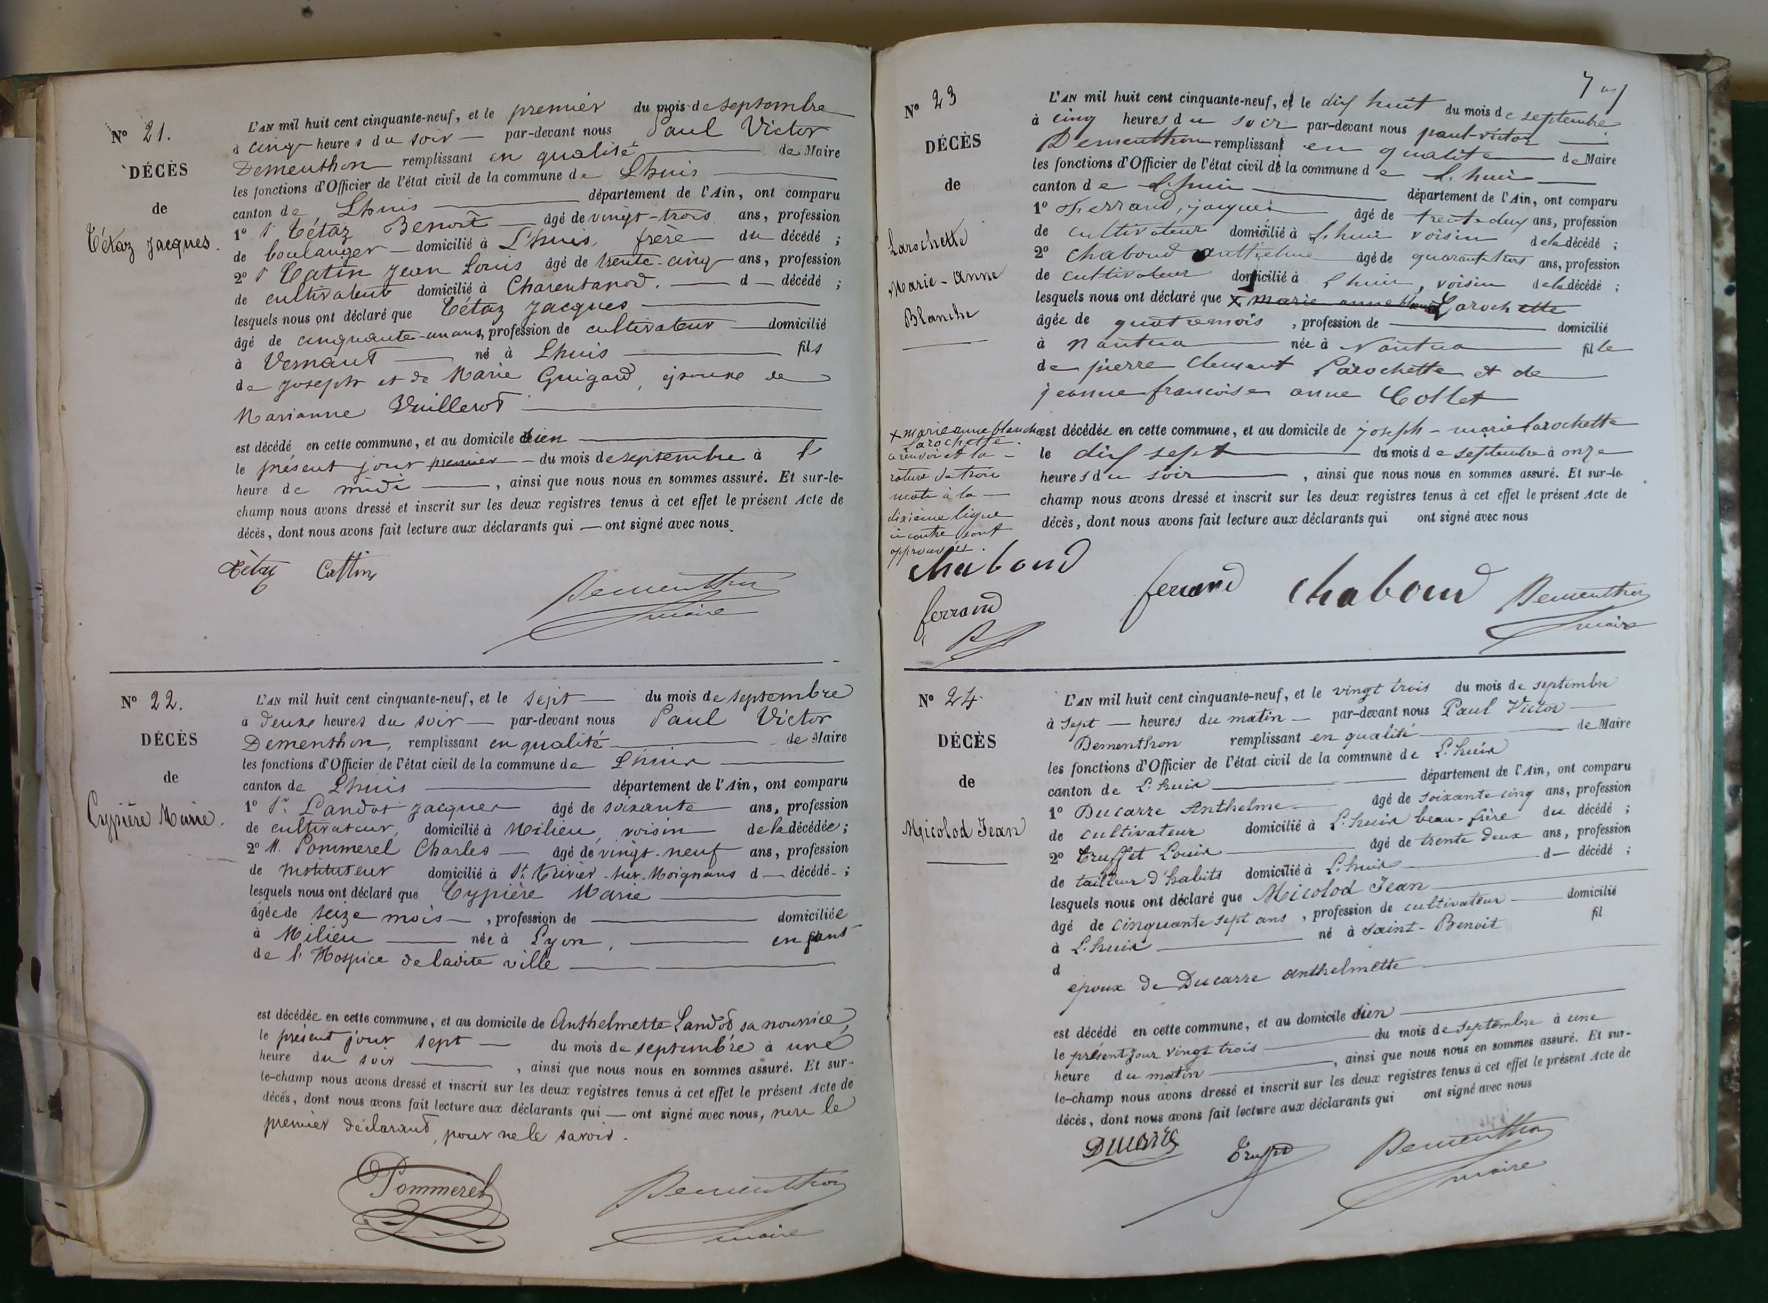 N° 21.
DÉCÈS
de
Tétaz Jacques.
L'AN mil huit cent cinquante-neuf, et le premier du mois de septembre
à cinq heures du soir — par-devant nous Paul Victor
Dementhon remplissant en qualité — de Maire
les fonctions d'Officier de l'état civil de la commune de Lhuis —
canton de Lhuis — département de l'Ain, ont comparu
1° Sr Tétaz Benoît — âgé de vingt-trois ans, profession
de boulanger — domicilié à Lhuis, frère du décédé ;
2° Sr Catin Jean Louis âgé de trente-cinq ans, profession
de cultivateur domicilié à Charentanod. — d — décédé ;
lesquels nous ont déclaré que Tétaz Jacques —
âgé de cinquante-un ans, profession de cultivateur — domicilié
à Vernaut — né à Lhuis — fils
de Joseph et de Marie Guigard, époux de
Marianne Vuillerod —
est décédé en cette commune, et au domicile sien —
le présent jour premier — du mois de septembre à l'
heure de midi — , ainsi que nous nous en sommes assuré. Et sur-le-
champ nous avons dressé et inscrit sur les deux registres tenus à cet effet le présent Acte de
décès, dont nous avons fait lecture aux déclarants qui — ont signé avec nous.
Tétaz Cattin
Dementhon
maire
N° 22.
DÉCÈS
de
Cypière Marie.
L'AN mil huit cent cinquante-neuf, et le sept — du mois de septembre
à deux heures du soir — par-devant nous Paul Victor
Dementhon, remplissant en qualité — de Maire
les fonctions d'Officier de l'état civil de la commune de Lhuis —
canton de Lhuis — département de l'Ain, ont comparu
1° Sr Landot Jacques âgé de soixante ans, profession
de cultivateur, domicilié à Milieu, voisin de la décédée ;
2° M. Pommerel Charles — âgé de vingt-neuf ans, profession
de instituteur domicilié à St Trivier-sur-Moignans d — décédé - ;
lesquels nous ont déclaré que Cypière Marie —
âgée de seize mois — , profession de — domiciliée
à Milieu — née à Lyon, — enfant
de l'Hospice de ladite ville —
est décédée en cette commune, et au domicile de Anthelmette Landod sa nourrice,
le présent jour sept — du mois de septembre à une
heure du soir — , ainsi que nous nous en sommes assuré. Et sur-
le-champ nous avons dressé et inscrit sur les deux registres tenus à cet effet le présent Acte de
décès, dont nous avons fait lecture aux déclarants qui — ont signé avec nous, non le
premier déclarant, pour ne le savoir.
Pommerel
Dementhon
maire
N° 23
DÉCÈS
de
Larochette
Marie-Anne
Blanche
L'AN mil huit cent cinquante-neuf, et le dix huit du mois de septembre
à cinq heures du soir par-devant nous paul-victor —
Dementhon remplissant en qualité — de Maire
les fonctions d'Officier de l'état civil de la commune de Lhuis —
canton de Lhuis — département de l'Ain, ont comparu
1° Ferrand, jacques — âgé de trente-deux ans, profession
de cultivateur domicilié à Lhuis voisin de la décédé ;
2° Chaboud anthelme âgé de quarante trois ans, profession
de cultivateur domicilié à Lhuis, voisin de la décédé ;
lesquels nous ont déclaré que x marie anne blanche Larochette
âgée de quatre mois , profession de — domicilié
à Nantua — née à Nantua — fille
de pierre Clement Larochette et de
jeanne françoise anne Collet
est décédée en cette commune, et au domicile de joseph-marie larochette
le dix sept — du mois de septembre à onze
heures du soir — , ainsi que nous nous en sommes assuré. Et sur-le-
champ nous avons dressé et inscrit sur les deux registres tenus à cet effet le présent Acte de
décès, dont nous avons fait lecture aux déclarants qui ont signé avec nous
x marie anne blanche
Larochette.
ce renvoi et la
rature de trois
mots à la —
dixième ligne
ci contre sont
approuvés.
chaboud
ferrand
ferrand chaboud Dementhon
maire
N° 24
DÉCÈS
de
Micolod Jean
L'AN mil huit cent cinquante-neuf, et le vingt trois du mois de septembre
à sept — heures du matin — par-devant nous Paul Victor —
Dementhon remplissant en qualité — de Maire
les fonctions d'Officier de l'état civil de la commune de L'huis
canton de L'huis — département de l'Ain, ont comparu
1° Ducarre Anthelme — âgé de soixante cinq ans, profession
de cultivateur domicilié à L'huis beau-frère du décédé ;
2° Truffet Louis — âgé de trente deux ans, profession
de tailleur d'habits domicilié à L'huis — d — décédé ;
lesquels nous ont déclaré que Micolod Jean —
âgé de cinquante sept ans , profession de cultivateur — domicilié
à L'huis — né à Saint-Benoit fil
d
époux de Ducarre anthelmette —
est décédé en cette commune, et au domicile sien —
le présent jour vingt trois — du mois de septembre à une
heure du matin — , ainsi que nous nous en sommes assuré. Et sur-
le-champ nous avons dressé et inscrit sur les deux registres tenus à cet effet le présent Acte de
décès, dont nous avons fait lecture aux déclarants qui ont signé avec nous
Ducarre Truffet Dementhon
maire